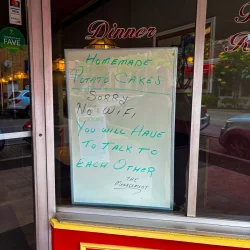 Dinner
FAVE
HOMEMADE
POTATO CAKES
SORRY
NO WIFI
YOU WILL HAVE
TO TALK TO
EACH OTHER
THE
MANAGEMENT